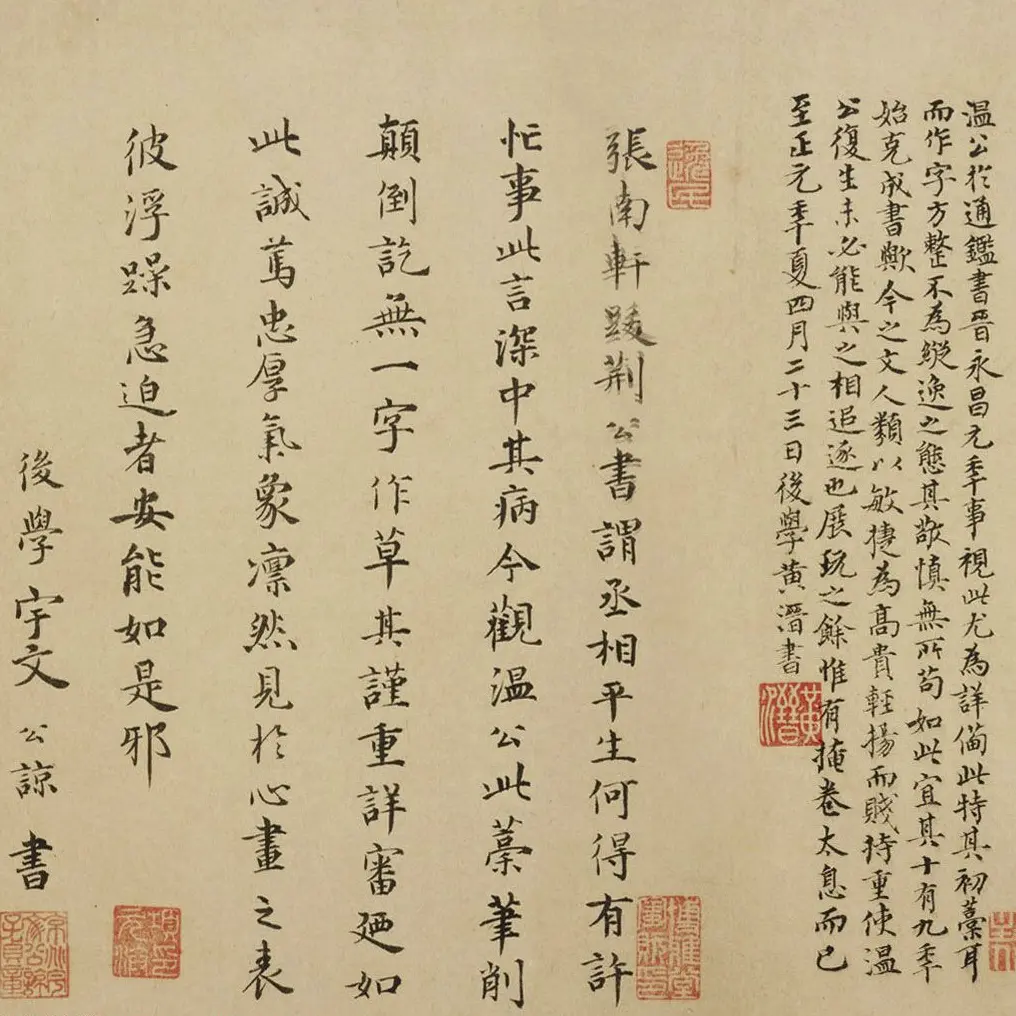 温公於通鑑書晉永昌元年事視此尤為詳備此特其初藁耳
而作字方整不為縱逸之態其敬慎無所苟如此宜其十有九年
始克成書歟今之文人類以敏捷為高貴輕揚而賤持重使温
公復生未必能與之相追逐也展玩之餘惟有掩卷太息而已
至正元年夏四月二十三日後學黃溍書
黃溍
張南軒跋荆公書謂丞相平生何得有許
忙事此言深中其病今觀温公此藁筆削
顛倒訖無一字作草其謹重詳審廼如
此誠篤忠厚氣象凛然見於心畫之表
彼浮躁急迫者安能如是邪
後學宇文公諒書